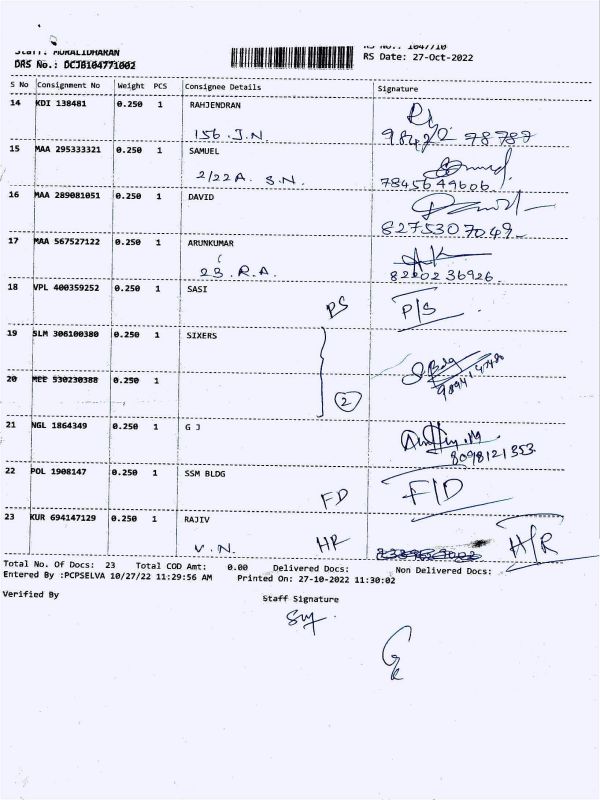 Staff: MURALIDHARAN RS No.: 1047710
DRS No.: DCJB104771002 RS Date: 27-Oct-2022
S No Consignment No Weight PCS Consignee Details Signature
14 KDI 138481 0.250 1 RAHJENDRAN
156 . J.N.
15 MAA 295333321 0.250 1 SAMUEL
2/22A. S.N. 7845649606.
16 MAA 289081051 0.250 1 DAVID
8275307049
17 MAA 567527122 0.250 1 ARUNKUMAR
23 . R.A. 8220236926.
18 VPL 400359252 0.250 1 SASI
PS P/S
19 SLM 306100380 0.250 1 SIXERS
20 MEE 530230388 0.250 1
2
21 NGL 1864349 0.250 1 G J
8098121353
22 POL 1908147 0.250 1 SSM BLDG
FD F/D
23 KUR 694147129 0.250 1 RAJIV
V.N. HR H/R
Total No. Of Docs: 23 Total COD Amt: 0.00 Delivered Docs: Non Delivered Docs:
Entered By :PCPSELVA 10/27/22 11:29:56 AM Printed On: 27-10-2022 11:30:02
Verified By Staff Signature